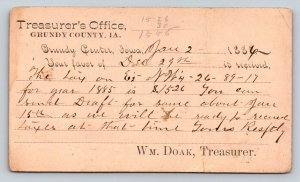 Treasurer's Office,
GRUNDY COUNTY, IA.
15 26
30
15 56
Grundy Center, Iowa, Jan 2 1886
Your favor of Dec 29th is received.
The Tax on E½ NW¼ - 26-89-17
for year 1885 is $15.26 You can
send Draft for same about Jan
15th as we will be ready to receive
taxes at that time Yours Respty
WM. DOAK, Treasurer.